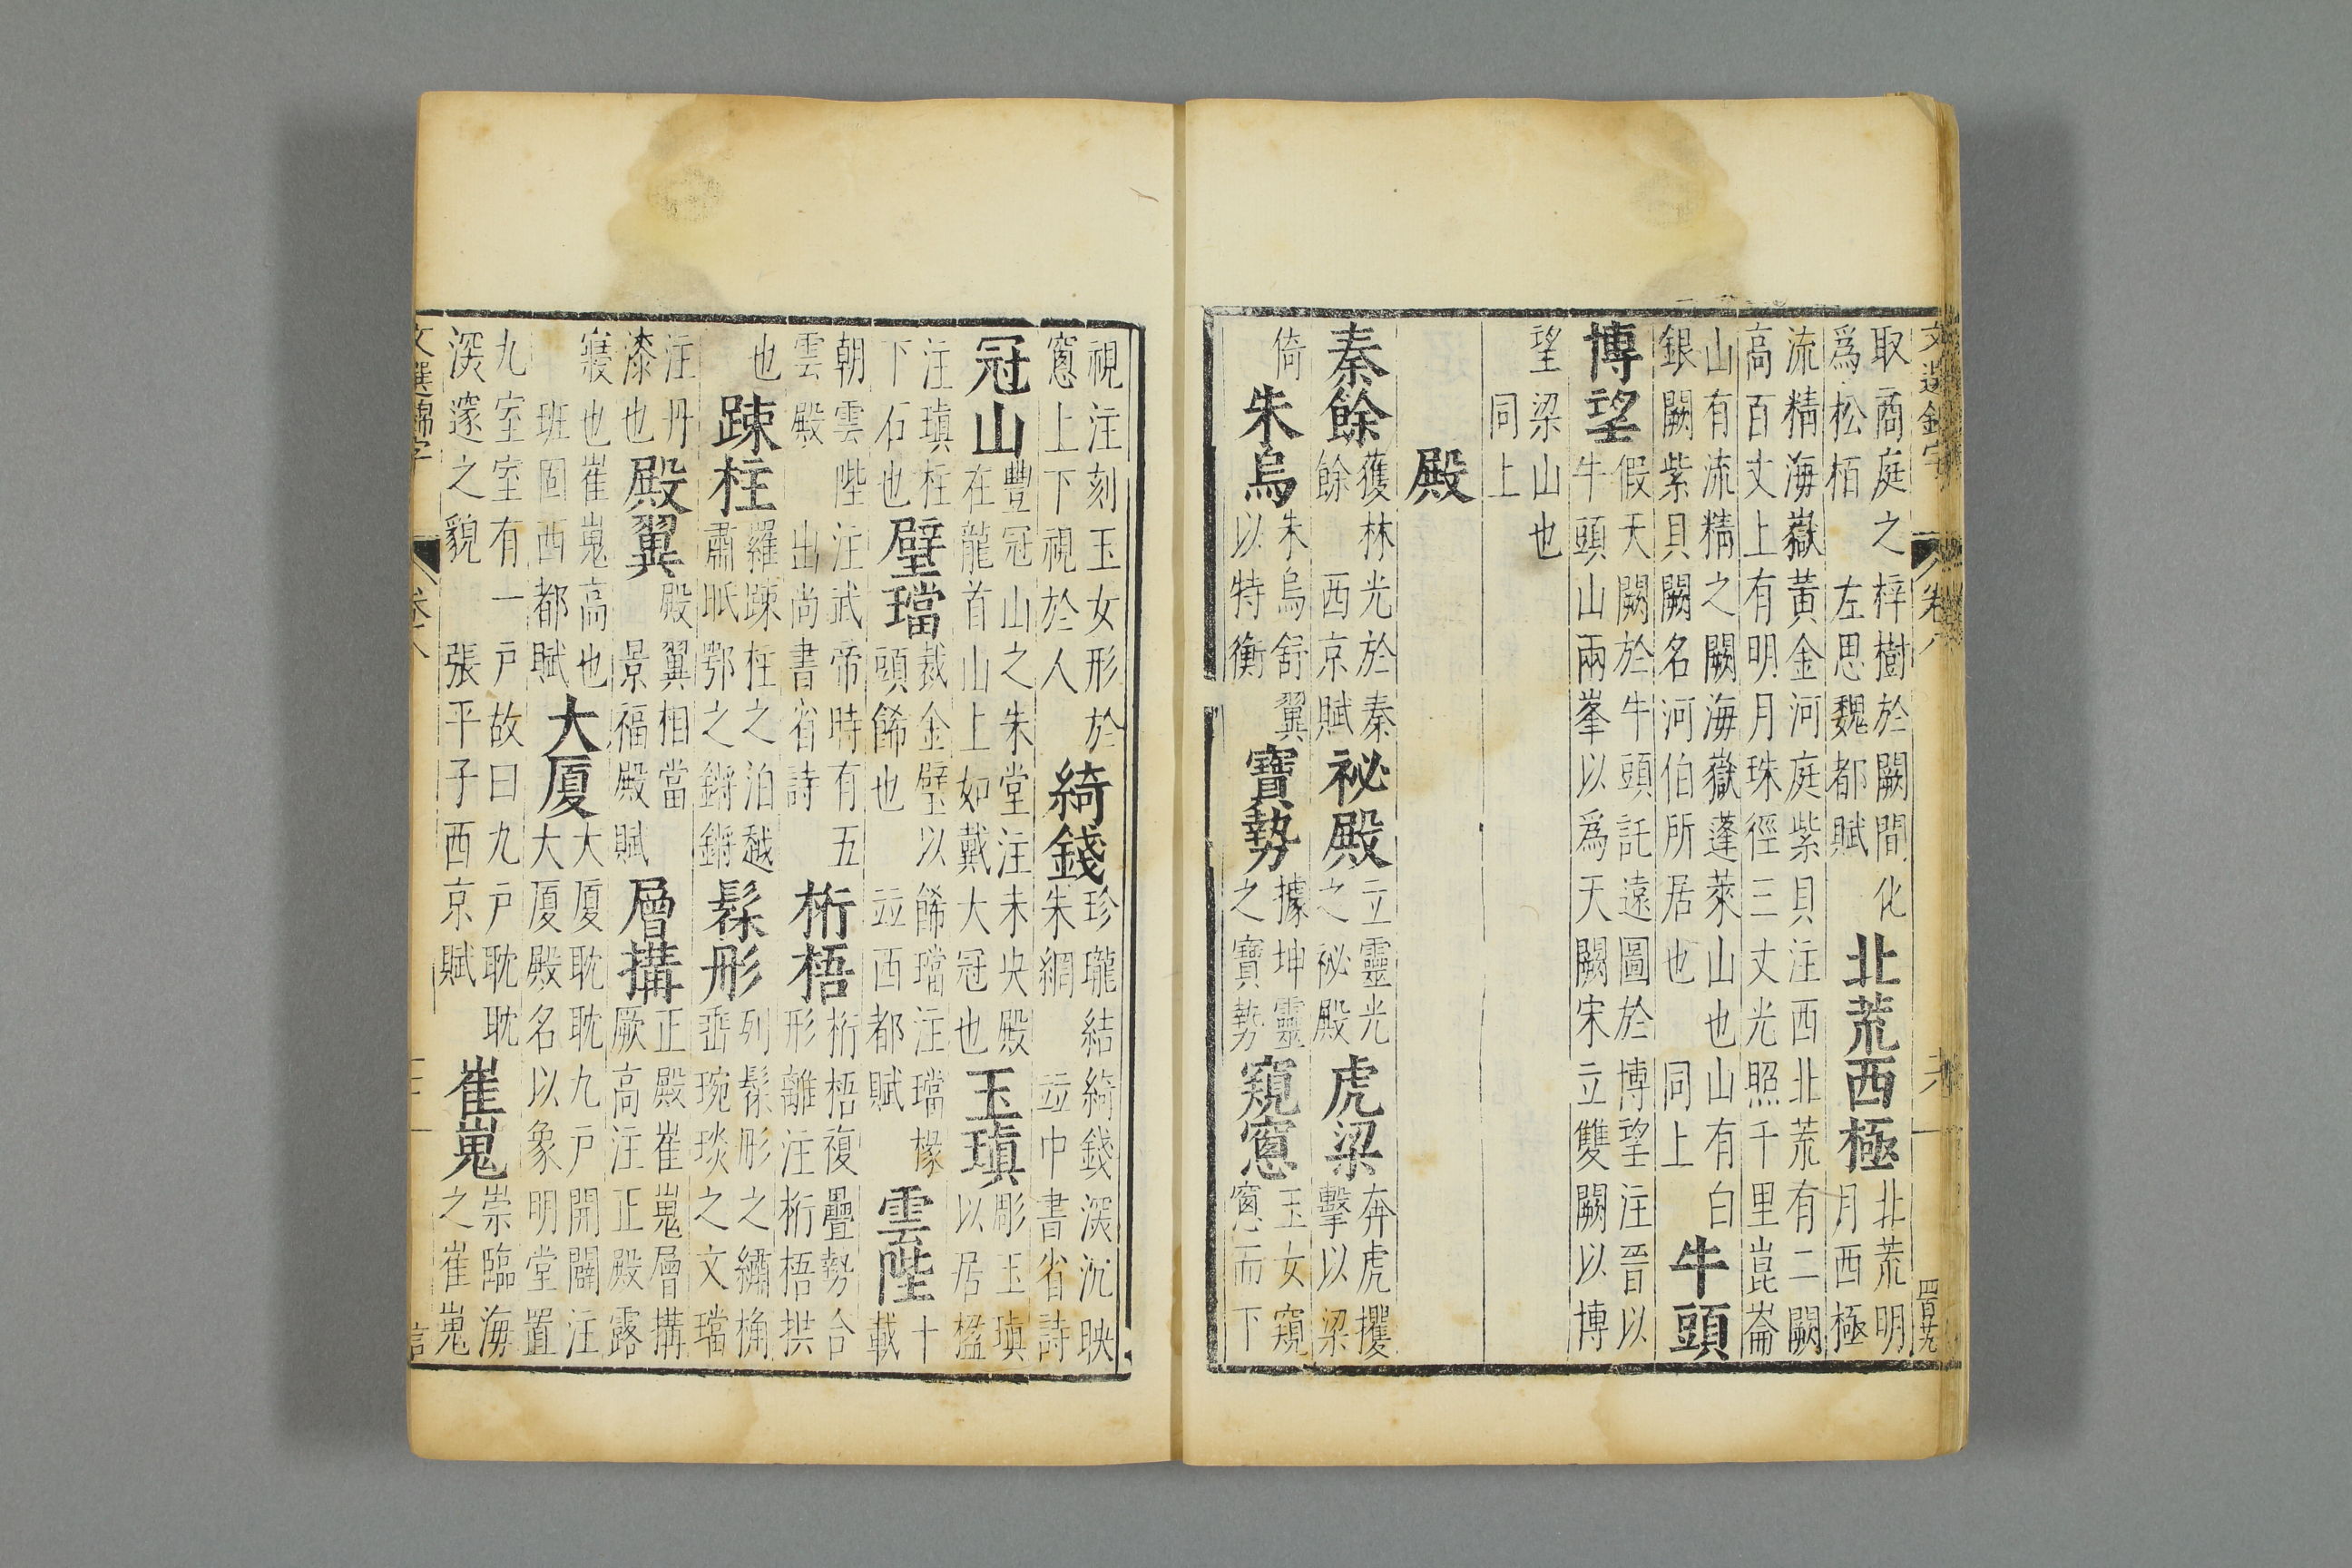 文選錦字 卷八
取商庭之梓樹於闕間化爲松栢 左思魏都賦 北荒西極 北荒明月西極
流精海嶽黃金河庭紫貝注西北荒有二闕高百丈上有明月珠徑三丈光照千里崑崙
山有流精之闕海嶽蓬萊山也山有白銀闕紫貝闕名河伯所居也 同上 牛頭
博望 假天闕於牛頭託遠圖於博望注晉以牛頭山兩峯以爲天闕宋立雙闕以博
望梁山也 同上
殿
秦餘 獲林光於秦餘 西京賦 祕殿 立靈光之祕殿 虎梁 奔虎攫擊以梁
倚 朱鳥 朱鳥舒翼以特衡 寶勢 據坤靈之寶勢 窺窻 玉女窺窻而下
視注刻玉女形於窻上下視於人 綺錢 珍瓏結綺錢深沉映朱網 竝中書省詩
冠山 豐冠山之朱堂注未央殿在龍首山上如戴大冠也 玉瑱 彫玉瑱以居楹
注瑱柱下石也 璧璫 裁金璧以餙璫注璫椽頭餙也 竝西都賦 雲陛 十載
朝雲陛注武帝時有五雲殿 出尚書省詩 桁梧 桁梧複疊勢合形離注桁梧拱
也 踈柱 羅踈柱之汩越肅眂鄂之鏘鏘 髹彤 列髹彤之繡桷垂琬琰之文璫
注丹漆也 殿翼 殿翼相當 景福殿賦 層搆 正殿崔嵬層搆厥高注正殿露
寢也崔嵬高也 班固西都賦 大厦 大厦耽耽九戶開闢注大厦殿名以象明堂置
九室室有一戶故曰九戶耽耽深邃之貌 張平子西京賦 崔嵬 崇臨海之崔嵬
文選錦字 卷八